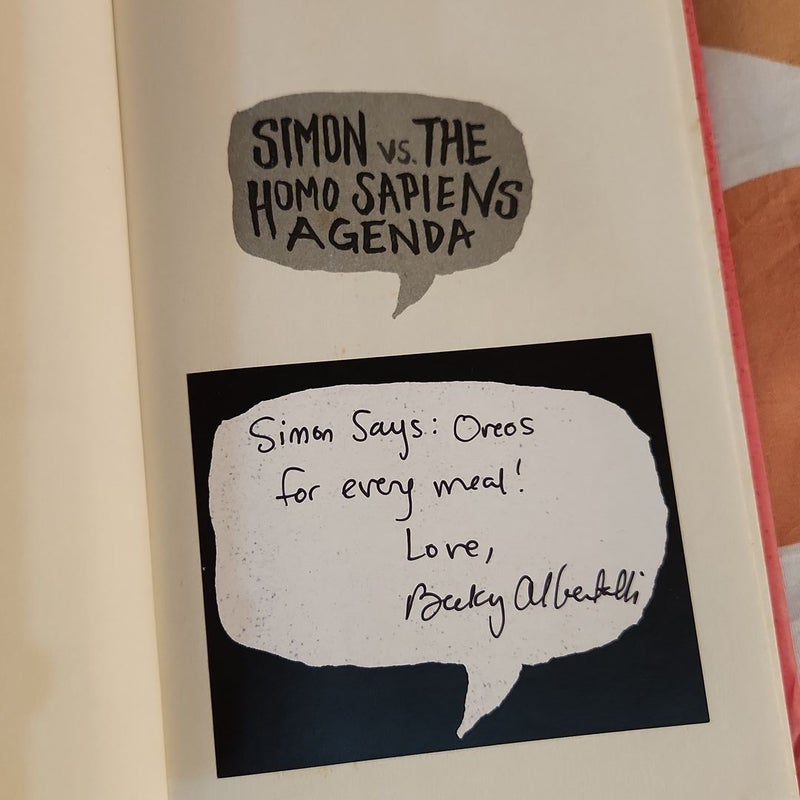 SIMON vs. THE
HOMO SAPIENS
AGENDA
Simon Says: Oreos
for every meal!
Love,
Becky Albertalli